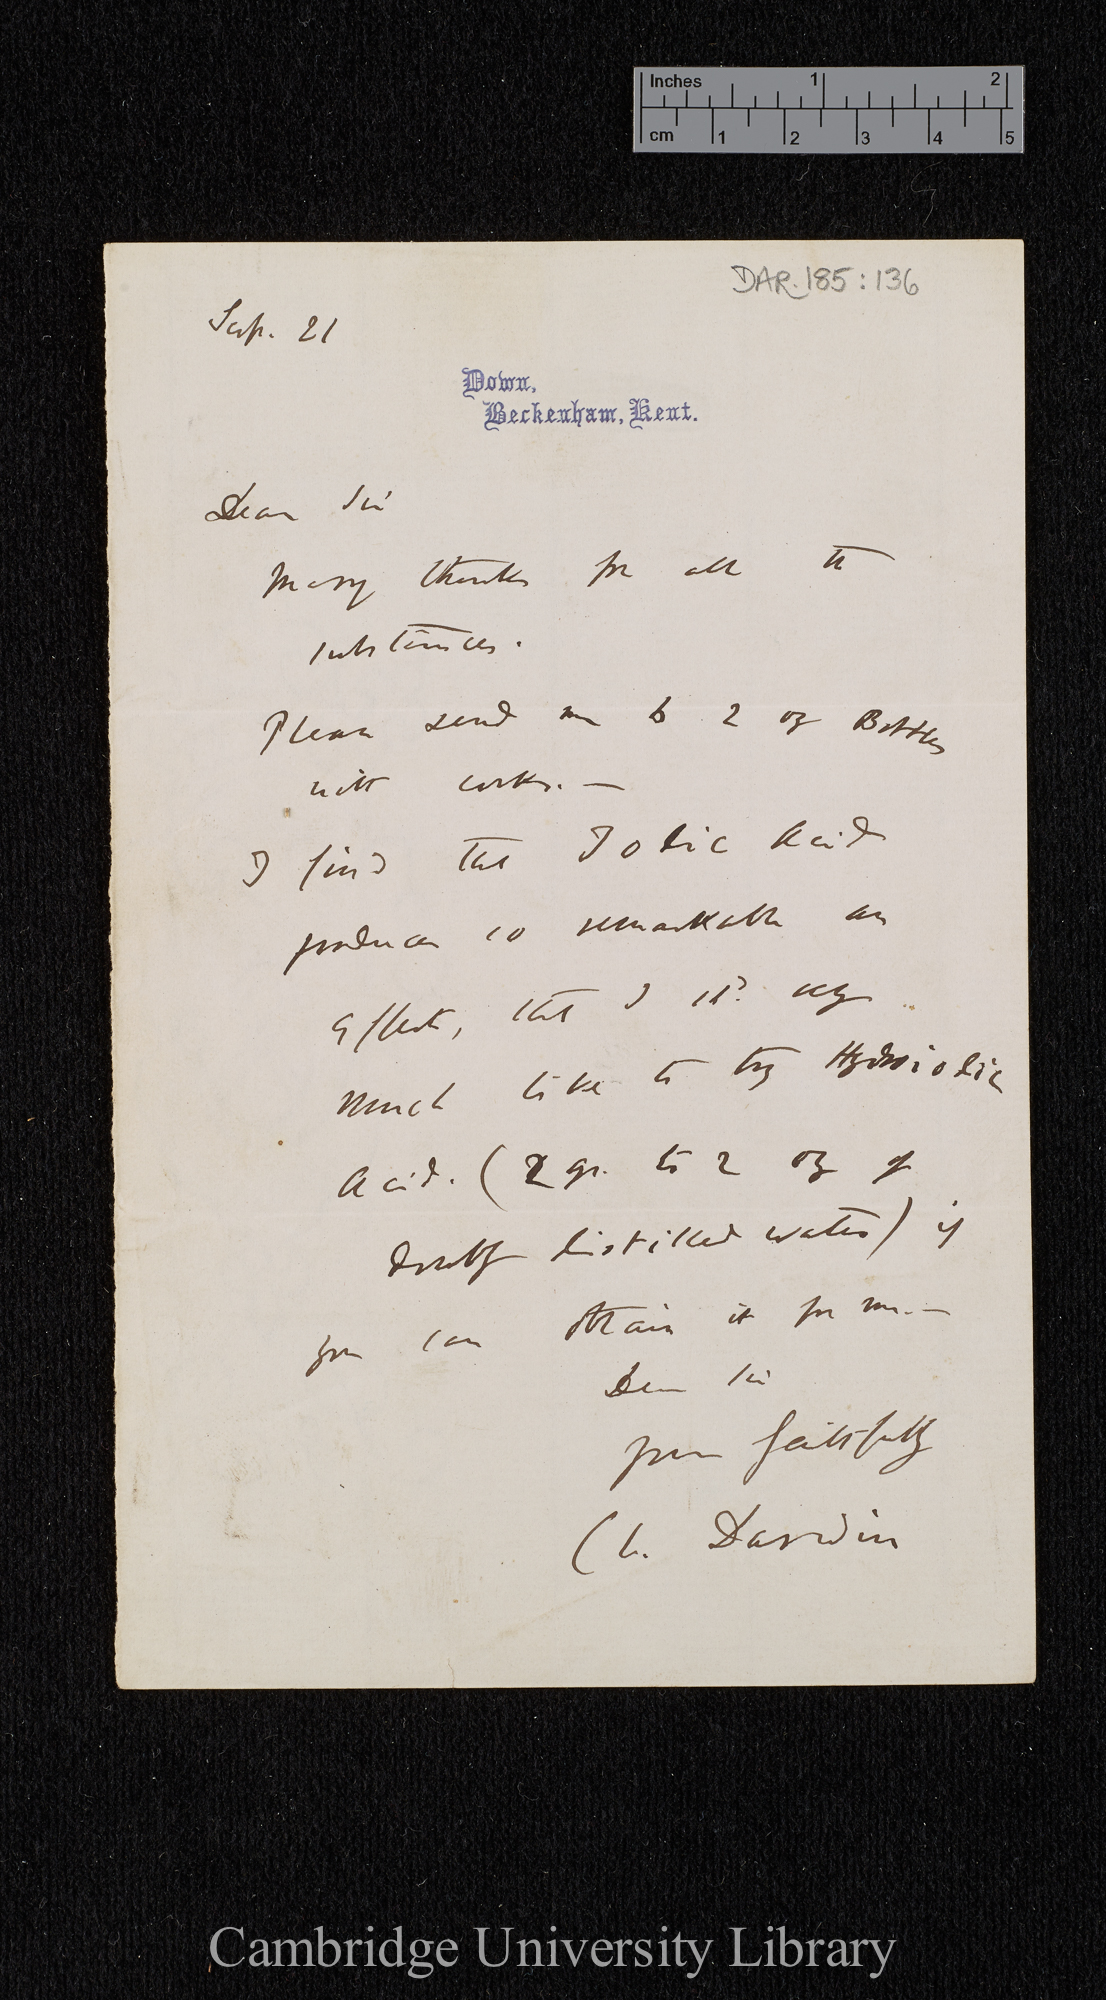 Inches 1 2
cm 1 2 3 4 5
DAR.185:136
Sep. 21
Down,
Beckenham, Kent.
Dear Sir
Many thanks for all the
substances.
Please send me 6 2 oz Bottles
with corks.—
I find that Iodic Acid
produces so remarkable an
effect, that I shd. very
much like to try Hydriodic
Acid. (2 gr. to 2 oz of
doubly distilled water) if
you can obtain it for me.—
Dear Sir
yours faithfully
Ch. Darwin
Cambridge University Library